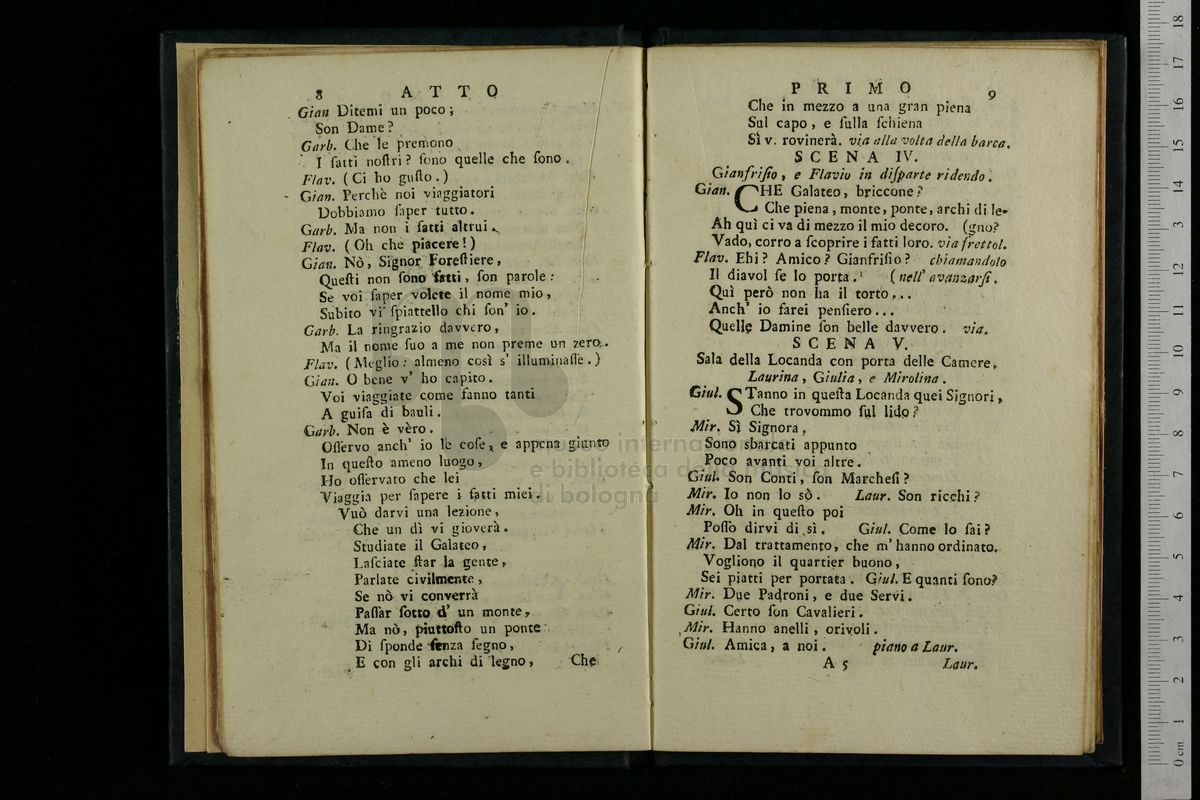 8 ATTO
Gian Ditemi un poco;
Son Dame?
Garb. Che le premono
I fatti noſtri? ſono quelle che ſono.
Flav. (Ci ho guſto.)
Gian. Perchè noi viaggiatori
Dobbiamo ſaper tutto.
Garb. Ma non i fatti altrui.
Flav. (Oh che piacere!)
Gian. Nò, Signor Foreſtiere,
Queſti non ſono fatti, ſon parole:
Se voi ſaper volete il nome mio,
Subito vi ſpiattello chi ſon' io.
Garb. La ringrazio davvero,
Ma il nome ſuo a me non preme un zero.
Flav. (Meglio: almeno così s' illuminaſſe.)
Gian. O bene v' ho capito.
Voi viaggiate come fanno tanti
A guiſa di bauli.
Garb. Non è vèro.
Oſſervo anch' io le coſe, e appena giunto
In queſto ameno luogo,
Ho oſſervato che lei
Viaggia per ſapere i fatti miei.
Vuò darvi una lezione,
Che un dì vi gioverà.
Studiate il Galateo,
Laſciate ſtar la gente,
Parlate civilmente,
Se nò vi converrà
Paſſar ſotto d' un monte,
Ma nò, piuttoſto un ponte
Di ſponde ſenza ſegno,
E con gli archi di legno, Che
PRIMO 9
Che in mezzo a una gran piena
Sul capo, e ſulla ſchiena
Sì v. rovinerà. via alla volta della barca.
SCENA IV.
Gianfriſio, e Flavio in diſparte ridendo.
Gian. CHE Galateo, briccone?
Che piena, monte, ponte, archi di le-
Ah quì ci va di mezzo il mio decoro. (gno?
Vado, corro a ſcoprire i fatti loro. via frettol.
Flav. Ehi? Amico? Gianfriſio? chiamandolo
Il diavol ſe lo porta. (nell' avanzarſi.
Quì però non ha il torto...
Anch' io farei penſiero...
Quelle Damine ſon belle davvero. via.
SCENA V.
Sala della Locanda con porta delle Camere.
Laurina, Giulia, e Mirolina.
Giul. STanno in queſta Locanda quei Signori,
Che trovommo ſul lido?
Mir. Sì Signora,
Sono sbarcati appunto
Poco avanti voi altre.
Giul. Son Conti, ſon Marcheſi?
Mir. Io non lo sò. Laur. Son ricchi?
Mir. Oh in queſto poi
Poſſo dirvi di sì. Giul. Come lo ſai?
Mir. Dal trattamento, che m' hanno ordinato.
Vogliono il quartier buono,
Sei piatti per portata. Giul. E quanti ſono?
Mir. Due Padroni, e due Servi.
Giul. Certo ſon Cavalieri.
Mir. Hanno anelli, orivoli.
Giul. Amica, a noi. piano a Laur.
A 5 Laur.
museo internazionale
e biblioteca della musica
di bologna
0 cm 1 2 3 4 5 6 7 8 9 10 11 12 13 14 15 16 17 18